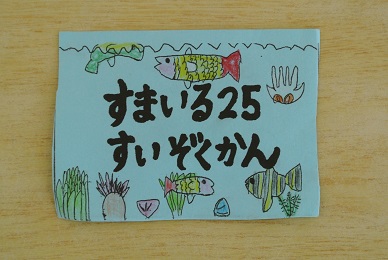 すまいる25
すいぞくかん